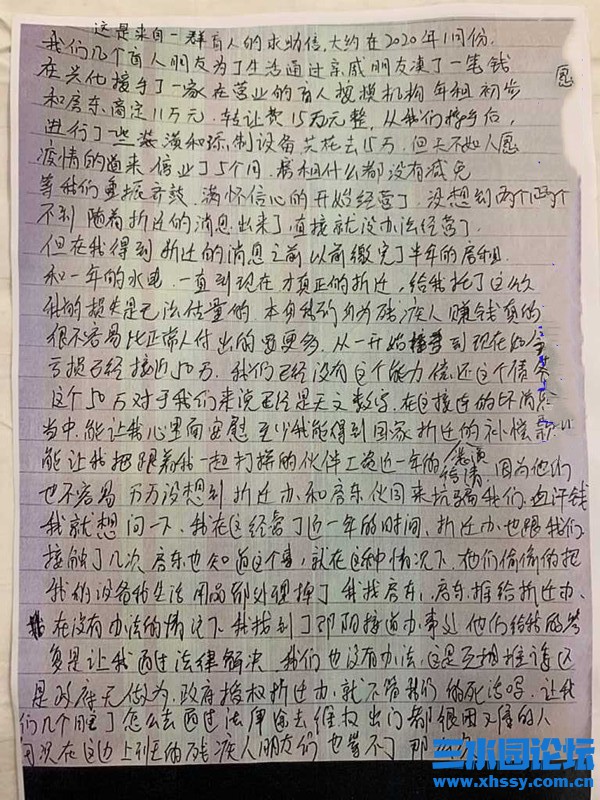 这是来自一群盲人的求助信,大约在2020年1月份,
我们几个盲人朋友为了生活通过亲戚朋友凑了一笔钱
在兴化接手了一家在营业的盲人按摩机构 年租 初步
愿
和房东商定11万元. 转让费15万元整, 从我们接手后,
进行了一些装潢和添制设备 共花去15万. 但天不如人愿
疫情的道来 停业了5个月. 房租什么都没有减免
等我们重振齐鼓. 满怀信心的开始经营了, 没想到两个
不到 随着折迁的消息出来了, 直接就没办法经营了.
但在我得到折迁的消息之前 以前缴完了半年的房租.
和一年的水电. 一直到现在才真正的折迁,
的损失是无法估量的. 本身我们身为残疾人 赚钱真的
很不容易 比正常人付出的要更多. 从一开始接手到现在
亏损已经接近50万. 我们已经没有这个能力偿还这个债务
这个50万对于我们来说已经是天文数字, 在这接连的坏消息
当中. 能让我心里面安慰 至少我能得到国家折迁的补偿款
能让我把跟着我一起打拼的伙伴工资近一年的 结清 因为他们
也不容易 万万没想到折迁办. 和房东伙同来坑骗我们血汗钱
我就想问一下. 我在这经营了近一年的时间. 折迁办也跟我们
接触了几次 房东也知道这个事, 就在这种情况下. 他们偷偷的把
我的设备和生活用品都处理掉了 我找房东, 房东推给折迁办.
在没有办法的情况下 我找到了昭阳接道办事处 他们给我的答
复是让我通过法律解决 我们也没有办法, 这是互相推诿
是政府无做为, 政府授权折迁办, 就不管我们的死活吗. 让我
们几个 怎么去通过法律途去维权 出门都很困又的人
何况在这边上列的残疾人朋友们 也等不了那
三水园论坛
www.xhssy.com.cn